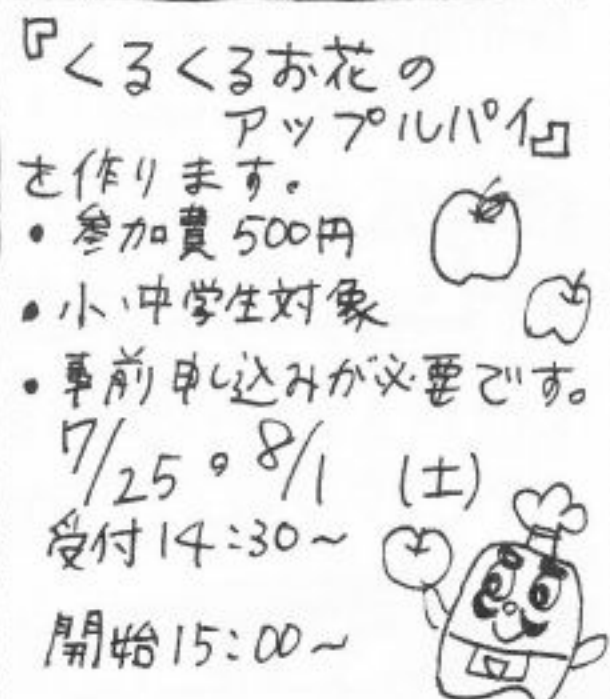 『くるくるお花の
アップルパイ』
を作ります。
・参加費 500円
・小、中学生対象
・事前申し込みが必要です。
7/25。8/1 (土)
受付14:30~
開始15:00~